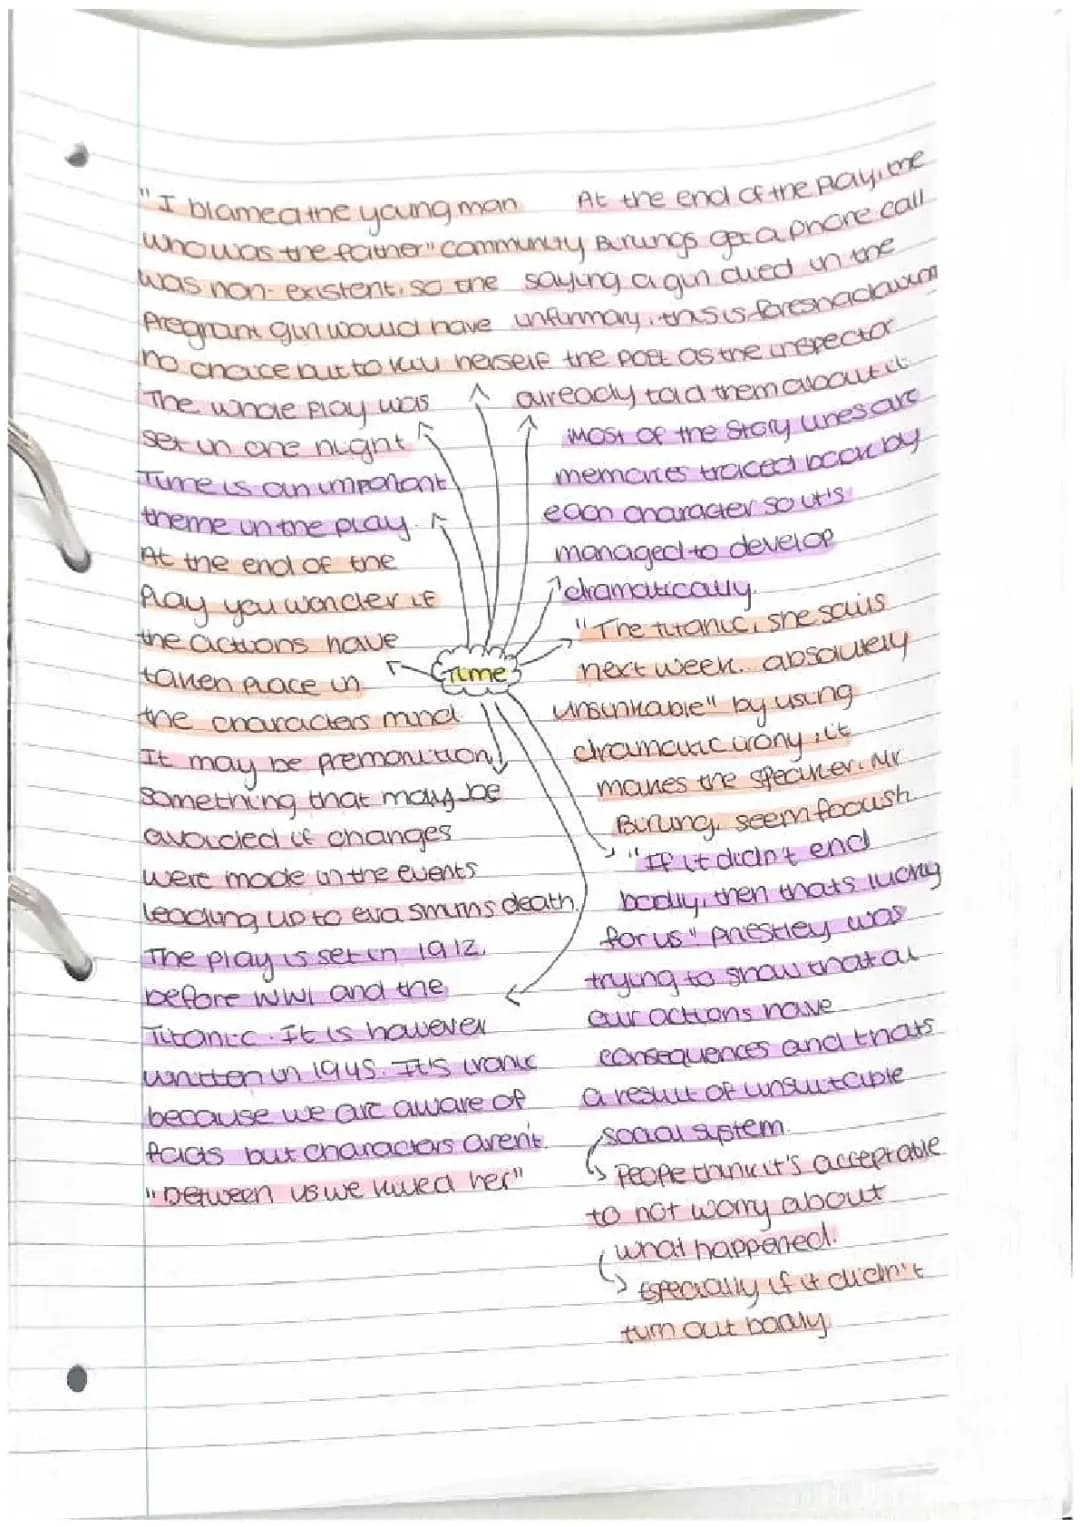 "I blamed the young man
who was the father" community
was non-existent, so the
pregnant girl would have
no choice but to kill herself
The whole play was
set in one night
Time is an important
theme in the play.
At the end of the
Play you wonder if
the actions have
taken place in
the characters mind
It may be premonition,
something that may be
avoided if changes
were made in the events
leading up to eva smiths death,
The play is set in 1912,
before WW1 and the
Titanic. It is however
written in 1945. It's ironic
because we are aware of
facts but characters aren't.
"between us we killed her"
Time
At the end of the Play, the
Birlings get a phone call
saying a girl died in the
infirmary, this is foreshadowing
the post as the inspector
already told them about it
Most of the story lines are
memories traced back by
each character so it's
managed to develop
dramatically.
"The titanic, she sails
next week... absolutely
unsinkable" by using
dramatic irony, it
makes the speaker, Mr
Birling, seem foolish
"If it didn't end
badly, then thats lucky
for us" Priestley was
trying to show that al
our actions have
consequences and thats
a result of unsuitable
social system.
People think it's acceptable
to not worry about
what happened.
Especially if it didn't
turn out badly